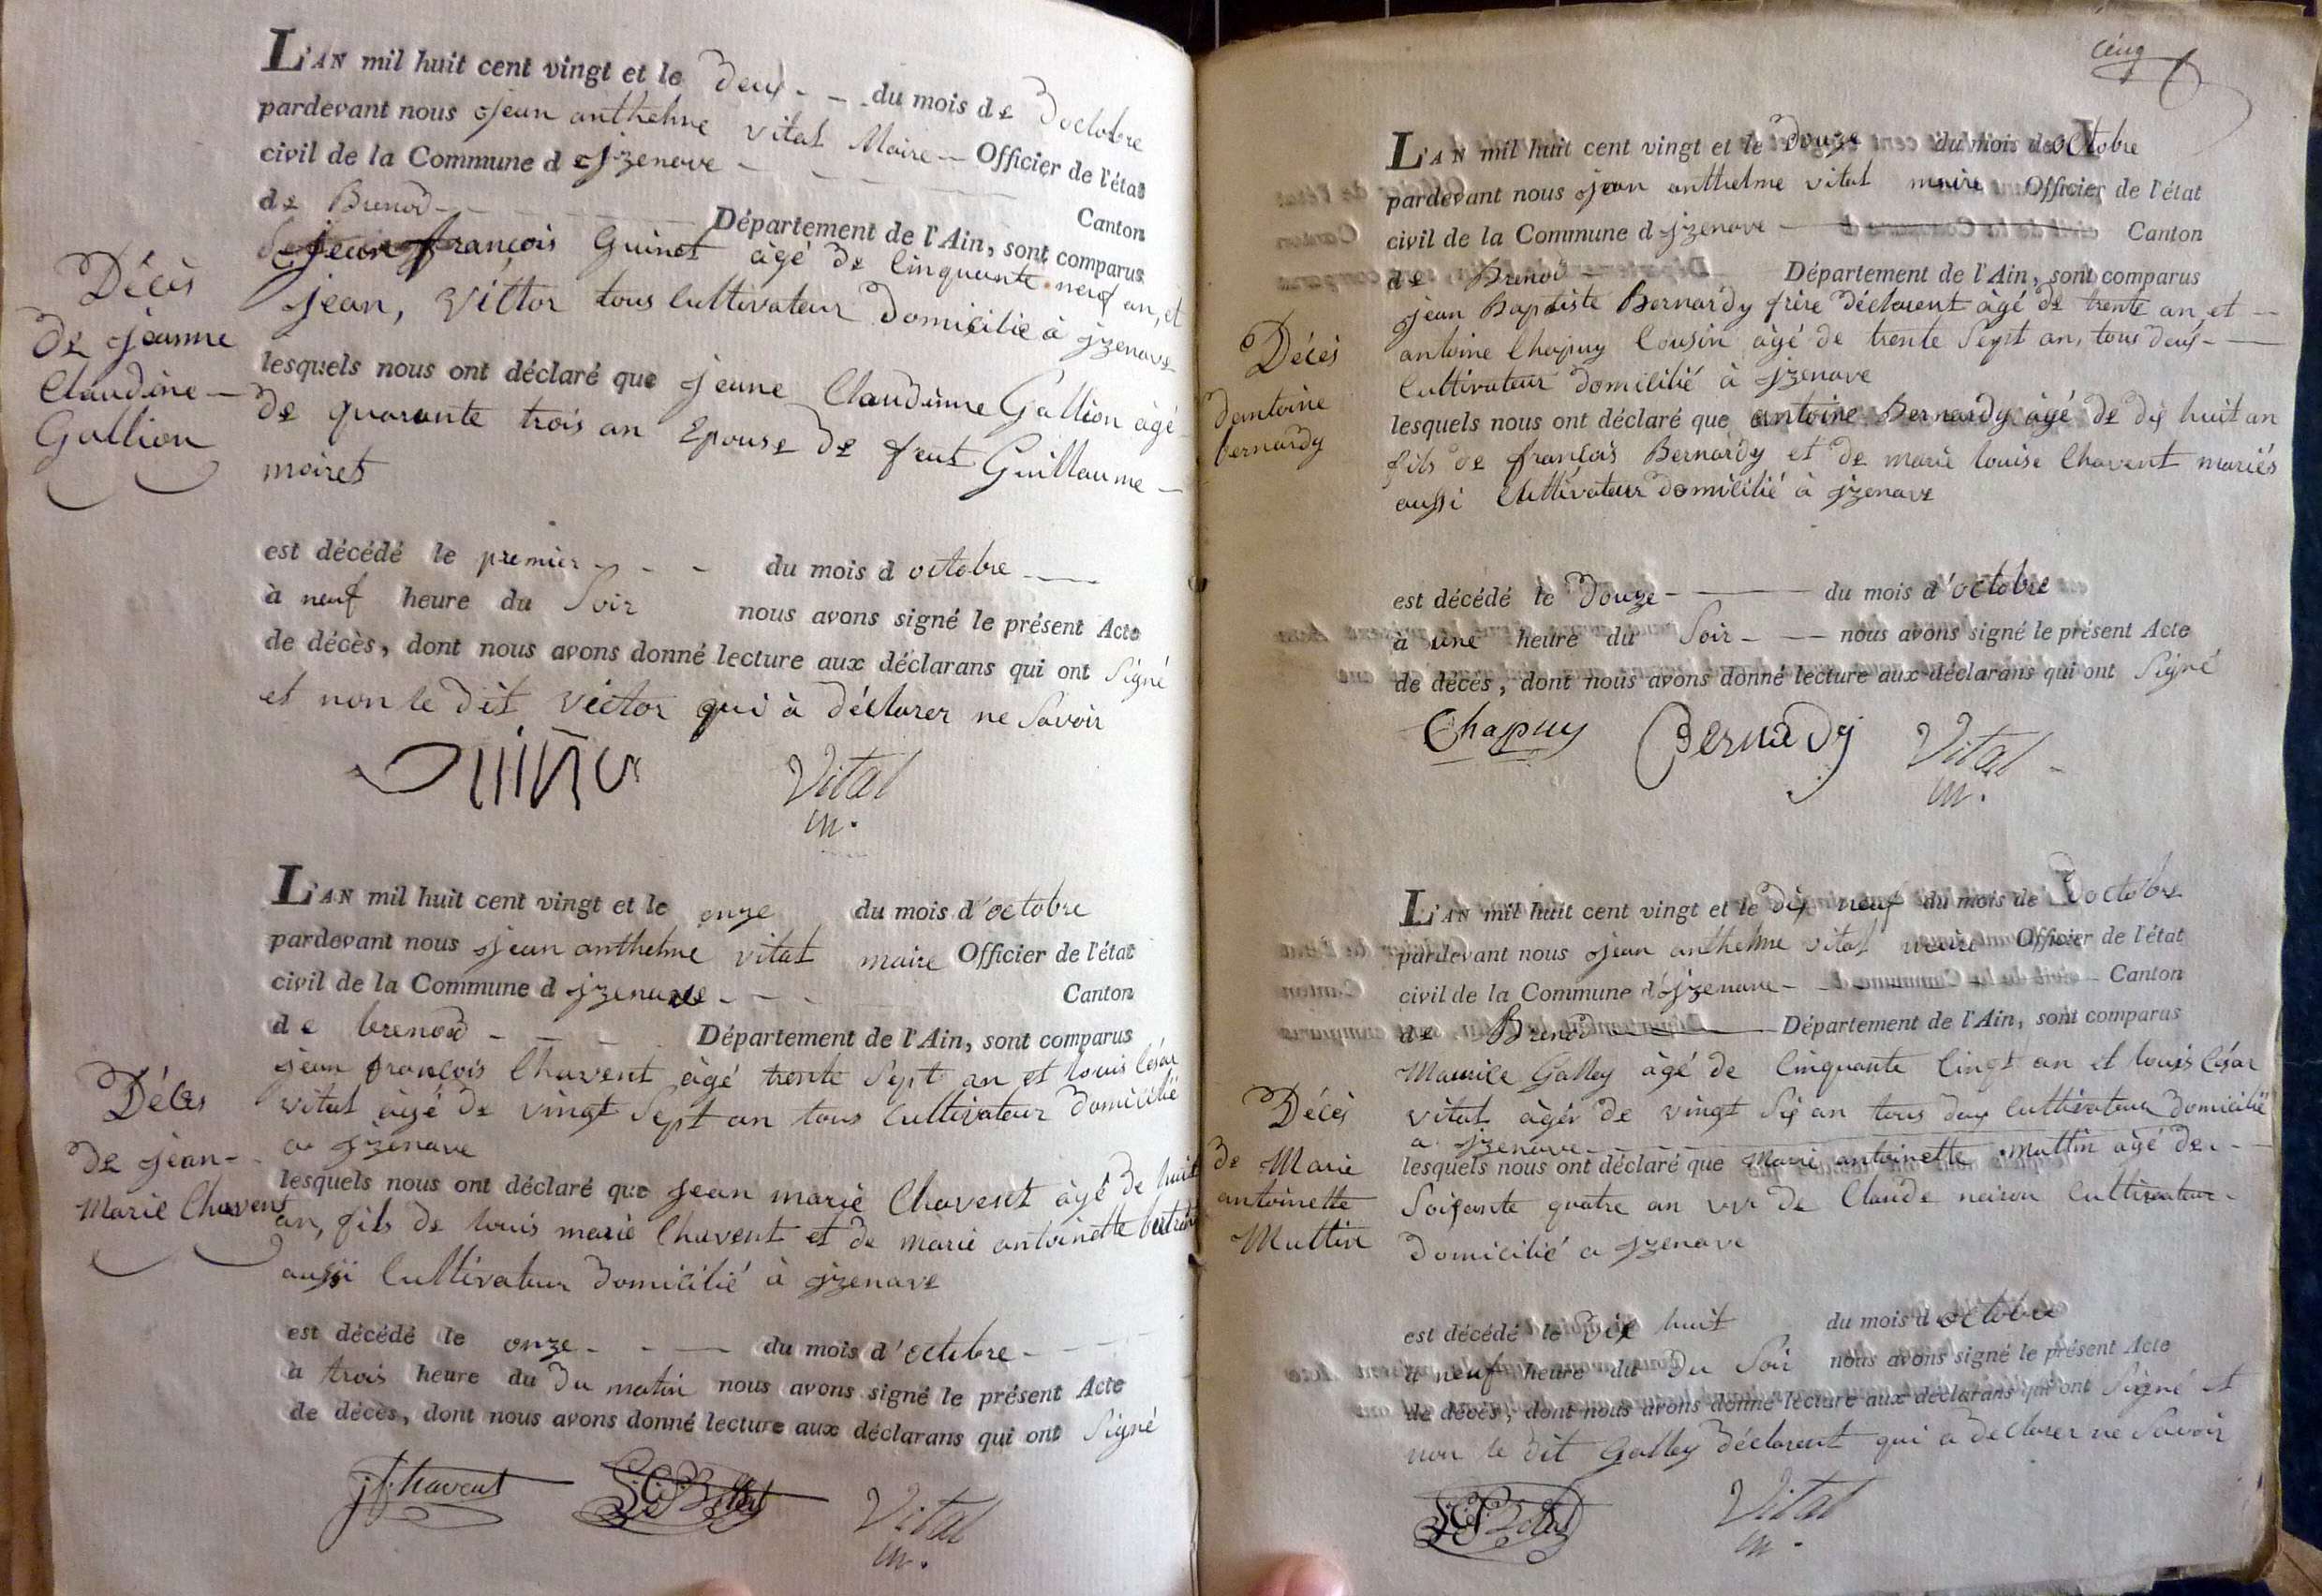 L'AN mil huit cent vingt et le deux du mois de d octobre
pardevant nous jean anthelme vital Maire Officier de l'état
civil de la Commune d jzenave
Canton
de Brenod Département de l'Ain, sont comparus
françois Guinet âgé de Cinquante neuf an, et
jean, Victor tous Cultivateur domicilié à jzenave
lesquels nous ont déclaré que jeanne Claudinne Gallion âgé
de quarante trois an Epouse de feut Guillaume
moiret
Décès
de jeanne
Claudine
Gallion
est décédé le premier du mois d octobre
à neuf heure du Soir nous avons signé le présent Acte
de décès, dont nous avons donné lecture aux déclarans qui ont Signé
et non le dit Victor qui à déclarer ne Savoir
Vital
m.
L'AN mil huit cent vingt et le onze du mois d'octobre
pardevant nous jean anthelme vital maire Officier de l'état
civil de la Commune d jzenave Canton
de brenod Département de l'Ain, sont comparus
jean françois Chavent âgé trente Sept an et louis César
vital âgé de vingt Sept an tous Cultivateur domicilié
a jzenave
lesquels nous ont déclaré que jean marie Chavent âgé de huit
an, fils de louis marie Chavent et de marie antoinette
aussi Cultivateur domicilié à jzenave
Décès
de jean-
Marie Chavent
est décédé le onze du mois d'octobre
à trois heure du du matin nous avons signé le présent Acte
de décès, dont nous avons donné lecture aux déclarans qui ont Signé
j f chavent Vital
m.
cinq
L'AN mil huit cent vingt et le douze du mois de octobre
pardevant nous jean anthelme vital maire Officier de l'état
civil de la Commune d jzenave Canton
de Brenod Département de l'Ain, sont comparus
jean Baptiste Bernardy frère déclarent âgé de trente an, et
antoine Chapuy Cousin âgé de trente Sept an, tous deux
Cultivateur domicilié à jzenave
lesquels nous ont déclaré que antoine Bernardy âgé de dix huit an
fils de françois Bernardy et de marie louise Chavent mariés
aussi Cultivateur domicilié à jzenave
Décès
dantoine
bernardy
est décédé le douze du mois d'octobre
à une heure du Soir nous avons signé le présent Acte
de décès, dont nous avons donné lecture aux déclarans qui ont Signé
Chapuy Bernady Vital
m.
L'AN mil huit cent vingt et le dix neuf du mois de doctobre
pardevant nous jean anthelme vital maire Officier de l'état
civil de la Commune d'jzenave Canton
de Brenod Département de l'Ain, sont comparus
Maurice Galley âgé de Cinquante Cingt an et louis César
vital âgér de vingt Six an tous dux Cultivateur domicilié
a jzenave
lesquels nous ont déclaré que Marie antoinette Muttin âgé de
Soixante quatre an vvr de Claude neirou Cultivateur
domicilié a jzenave
Décès
de Marie
antoinette
Muttin
est décédé le dix huit du mois d octobre
à neuf heure du du Soir nous avons signé le présent Acte
de décès, dont nous avons donné lecture aux déclarans qui ont Signé et
non le dit Galley déclarent qui a declarer ne Savoir
Vital
m.